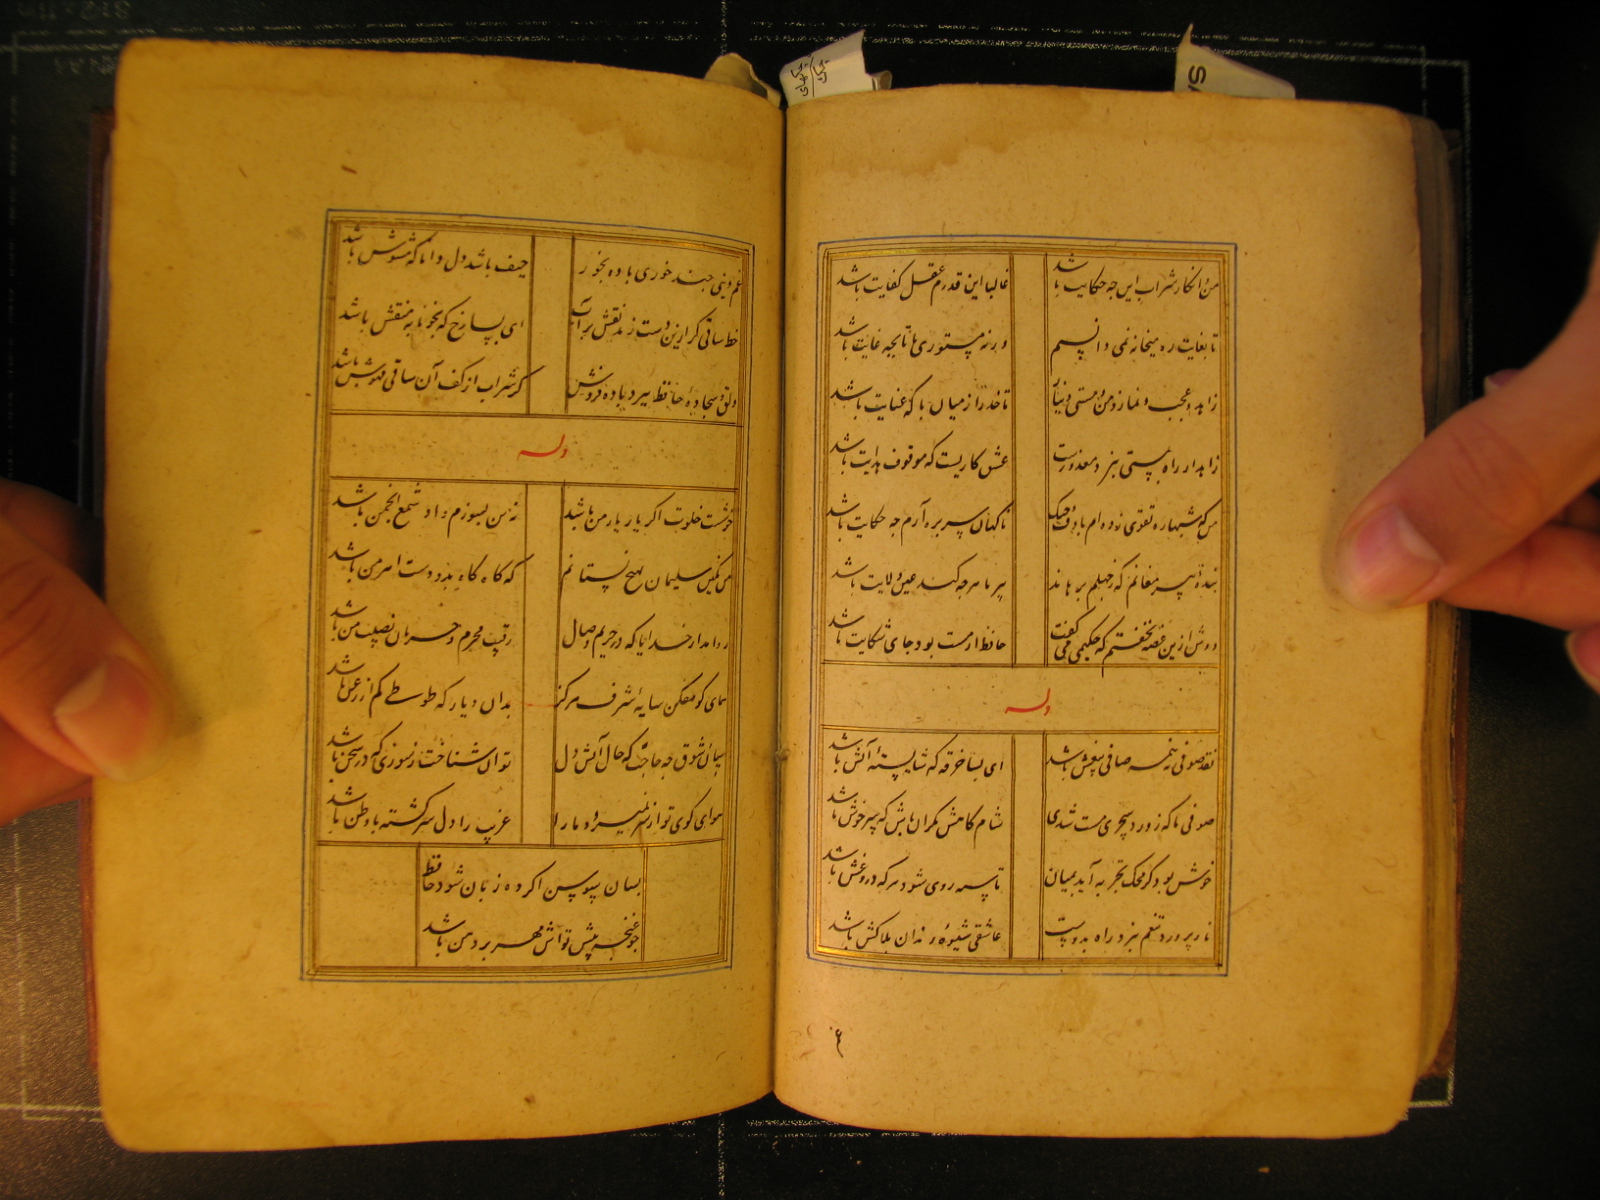 من و انکار شراب این چه حکایت باشد
غالبا این قدرم عقل کفایت باشد
تا بغایت ره میخانه نمی دانستم
ورنه مستوری ما تا بچه غایت باشد
زاهد و عجب و نماز و من و مستی و نیاز
تا خدا را ز میان با که عنایت باشد
زاهد ار راه برستی نبرد معذورست
عشق کاریست که موقوف هدایت باشد
من که شبها ره تقوی زده ام با دف و چنک
ناکهان سر بره آرم چه حکایت باشد
بنده پیر مغانم که ز جهلم برهاند
پیر ما هر چه کند عین ولایت باشد
دوش ازین غصه نخفتم که حکیمی می گفت
حافظ ار مست بود جای شکایت باشد
وله
نقد صوفی نه همه صافی بیغش باشد
ای بسا خرقه که شایسته آتش باشد
صوفی ما که ز ورد سحری مست شدی
شام کاهش نکران باش که سرخوش باشد
خوش بود کر محک تجربه آید بمیان
تا سیه روی شود هر که دروغش باشد
ناز پرورد تنعم نبرد راه بدوست
عاشقی شیوه رندان بلاکش باشد
غم دنیی چند خوری باده بخور
حیف باشد دل دانا که مشوش باشد
خط ساقی کر ازین دست زند نقش بر آب
ای بسا رخ که بخونابه منقش باشد
دلق و سجاده حافظ ببرد باده فروش
کر شراب از کف آن ساقی مهوش باشد
وله
خوشست خلوت اکر یار یار من باشد
نه من بسوزم و او شمع انجمن باشد
من آن نکین سلیمان بهیچ نستانم
که کاه کاه بدو دست اهرمن باشد
روا مدار خدایا که در حریم وصال
رقیب محرم و حرمان نصیب من باشد
همای کو مفکن سایه شرف هرکز
بدان دیار که طوطی کم از زغن باشد
بیان شوق چه حاجت که حال آتش دل
توان شناخت ز سوزی که در سخن باشد
هوای کوی تو از سر نمیرود ما را
غریب را دل سرکشته با وطن باشد
بسان سوسن اکر ده زبان شود حافظ
چو غنچه پیش تواش مهر بر دهن باشد